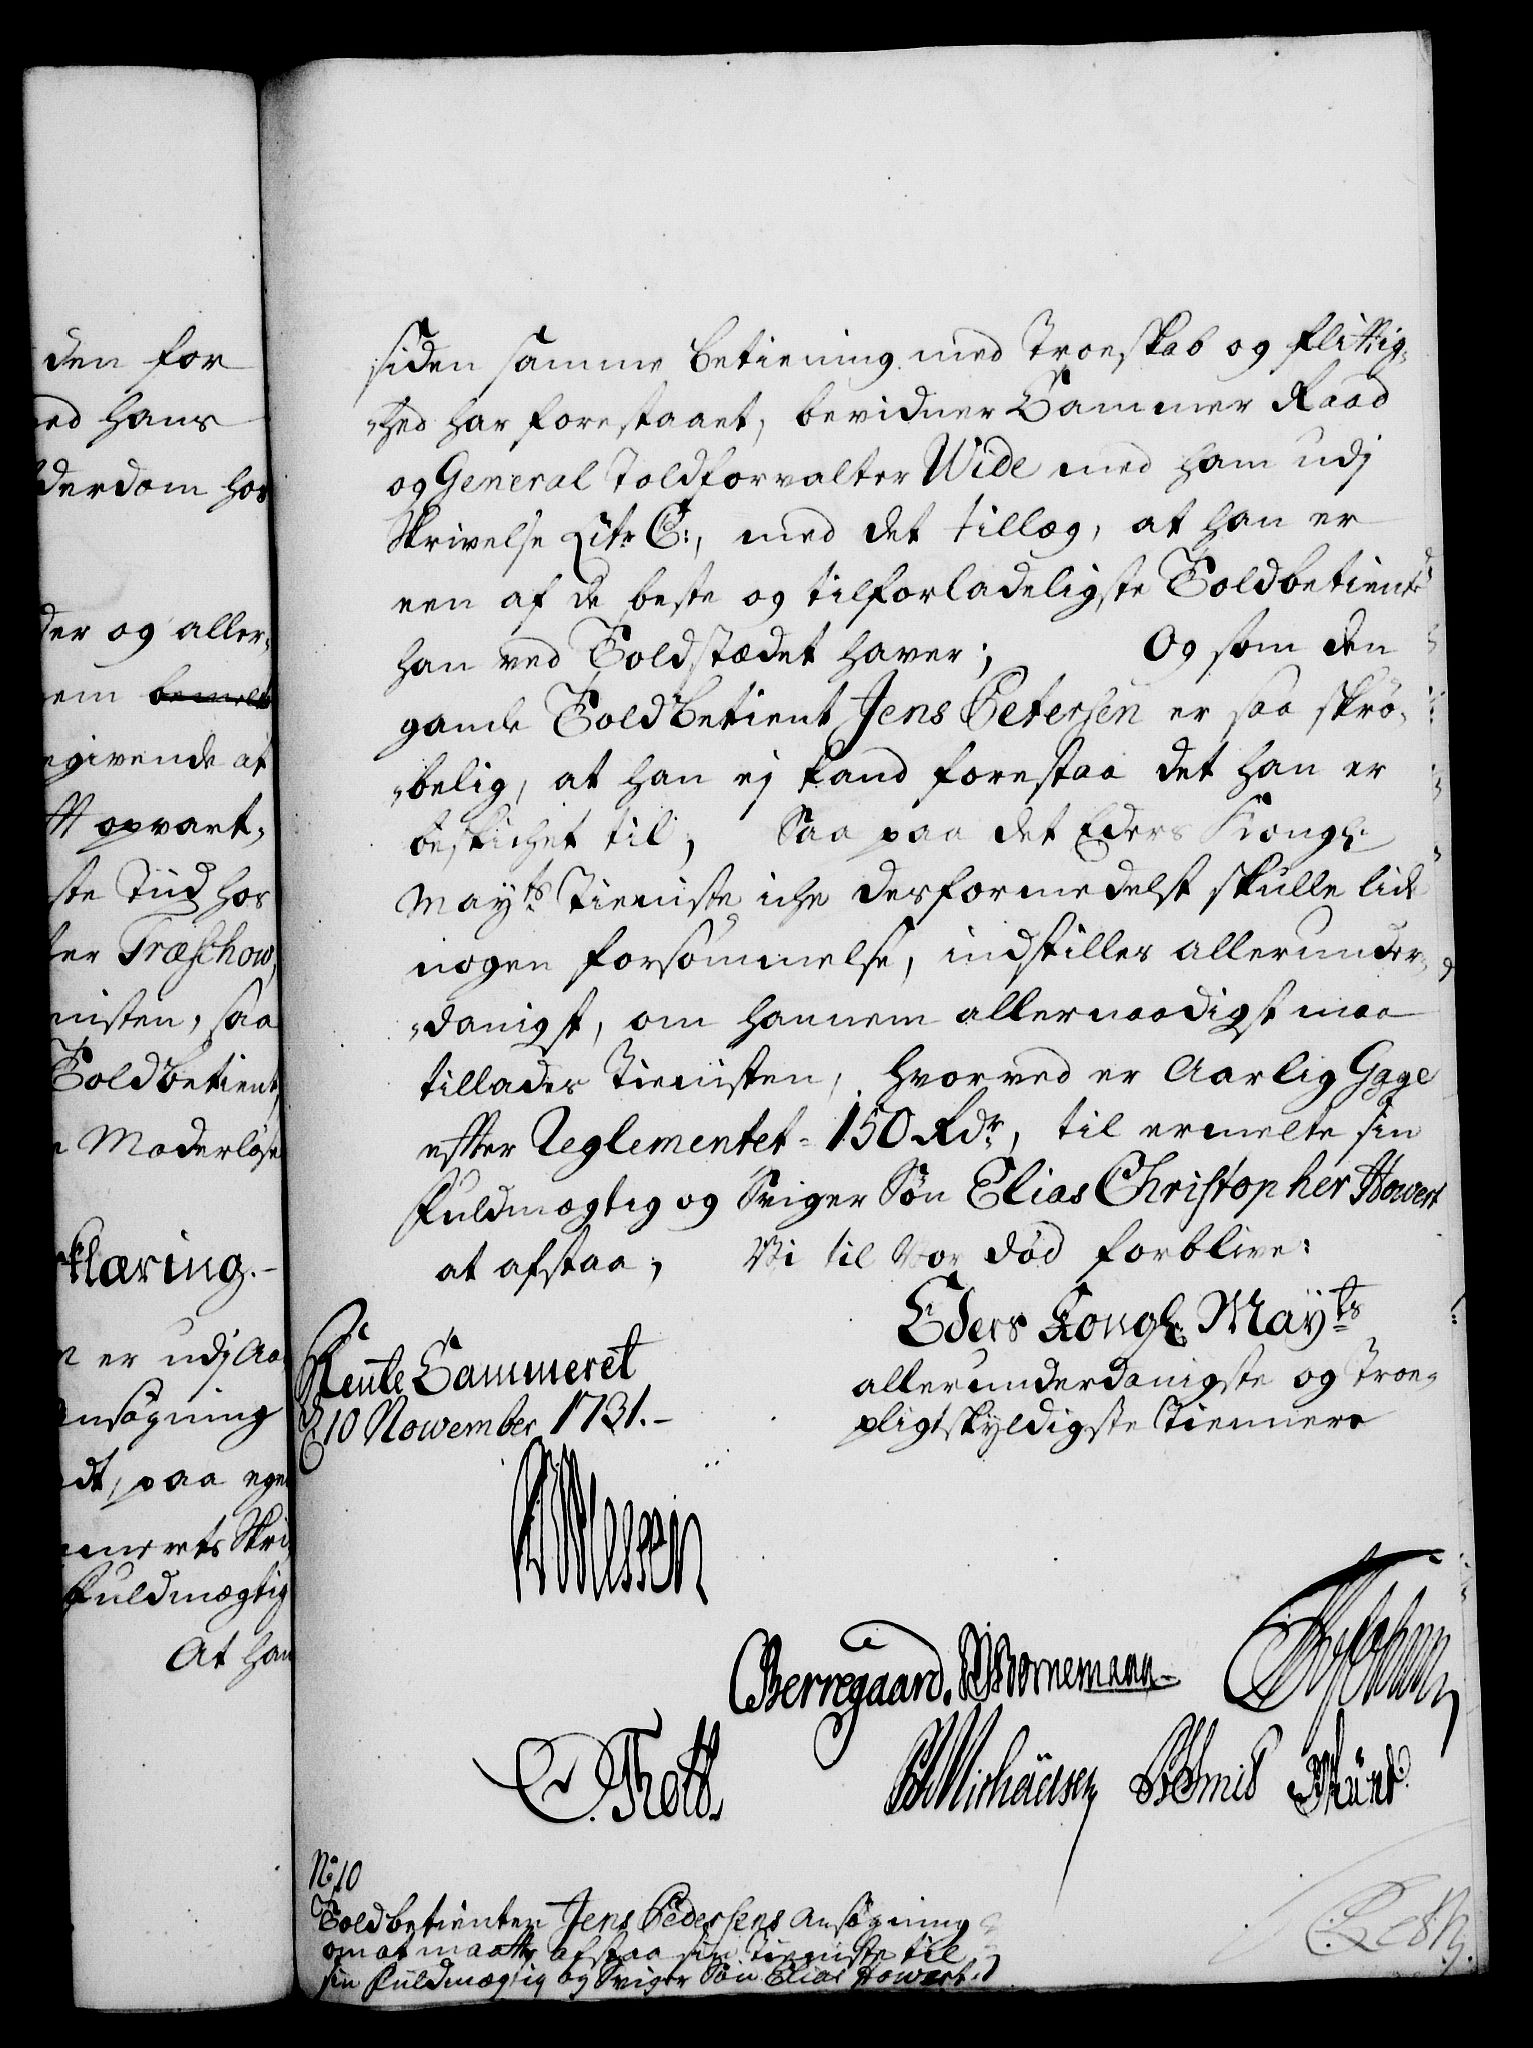 den for
ed hans
derdom hos
der og aller-
em bemelte
givende at
tt opvart-
ste Tiid hos
ter Træschow,
nisten, saa
Toldbetient,
Moderløse
klæring.-
er udj Aa
nsøgning
dt, paa egen
merets Skri
Fuldmægtig
At han
siden samme betiening med Troeskab og flittig-
-hed har forestaaet, bevidner Cammer Raad
og General Toldforvalter Wide med ham udj
Skrivelse Litr C:, med det tillæg, at han er
een af de beste og tilforladeligste Toldbetiente
han ved Toldstædet haver; Og som den
gamle Toldbetient Jens Petersen er saa skrø-
-belig, at han ej kand forestaa det han er
beskichet til; Saa paa det Eders Kongl:
Mayts Tieniste iche desformedelst skulle lide
nogen forsømmelse, indstilles allerunder-
-danigst, om hannem allernaadigst maa
tillades Tienisten, hvorved er Aarlig Gage
effter Reglementet 150 Rdr, til ermelte sin
Fuldmægtig og Sviger Søn Elias Christopher Howert
at afstaa; Vi til Vor død forblive:
Eders Kongl. Mayts
allerunderdanigste og Troe-
pligtskyldigste Tiennere
Rente Cammeret
d 10 November 1731.-
Berregaard. Bornemann
O. Thott.
No 10
Toldbetienten Jens Pedersens ansøgning
om at maatte afstaa sin Tieniste til
sin Fuldmægtig og Sviger Søn Elias Howert.